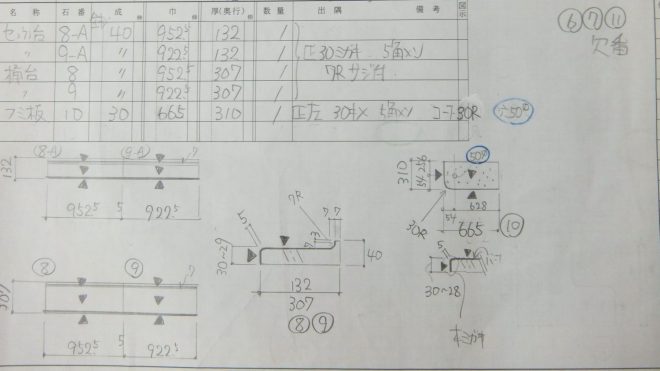 名称 石番 成 巾 厚(奥行) 数量 出隅 備考 図示
8-A 40 952.5 132 1
〃 9-A 〃 922.5 132 1 正30ミガキ 5角メン
桶台 8 〃 952.5 307 1 7Rサジ付
〃 9 〃 922.5 307 1
フミ板 10 30 665 310 1 正左 30本メ 5角メン コーナ30R 穴50φ
⑥ ⑦ ⑪
欠番
8-A 9-A
132
7
952.5 5 922.5
⑧ ⑨
307
7
952.5 5 922.5
7R
5
7 7
7 3
30~29
40
132
307
⑧ ⑨
50φ
310
54 256
628
54
30R
665
⑩
5
30~28
本ミガキ